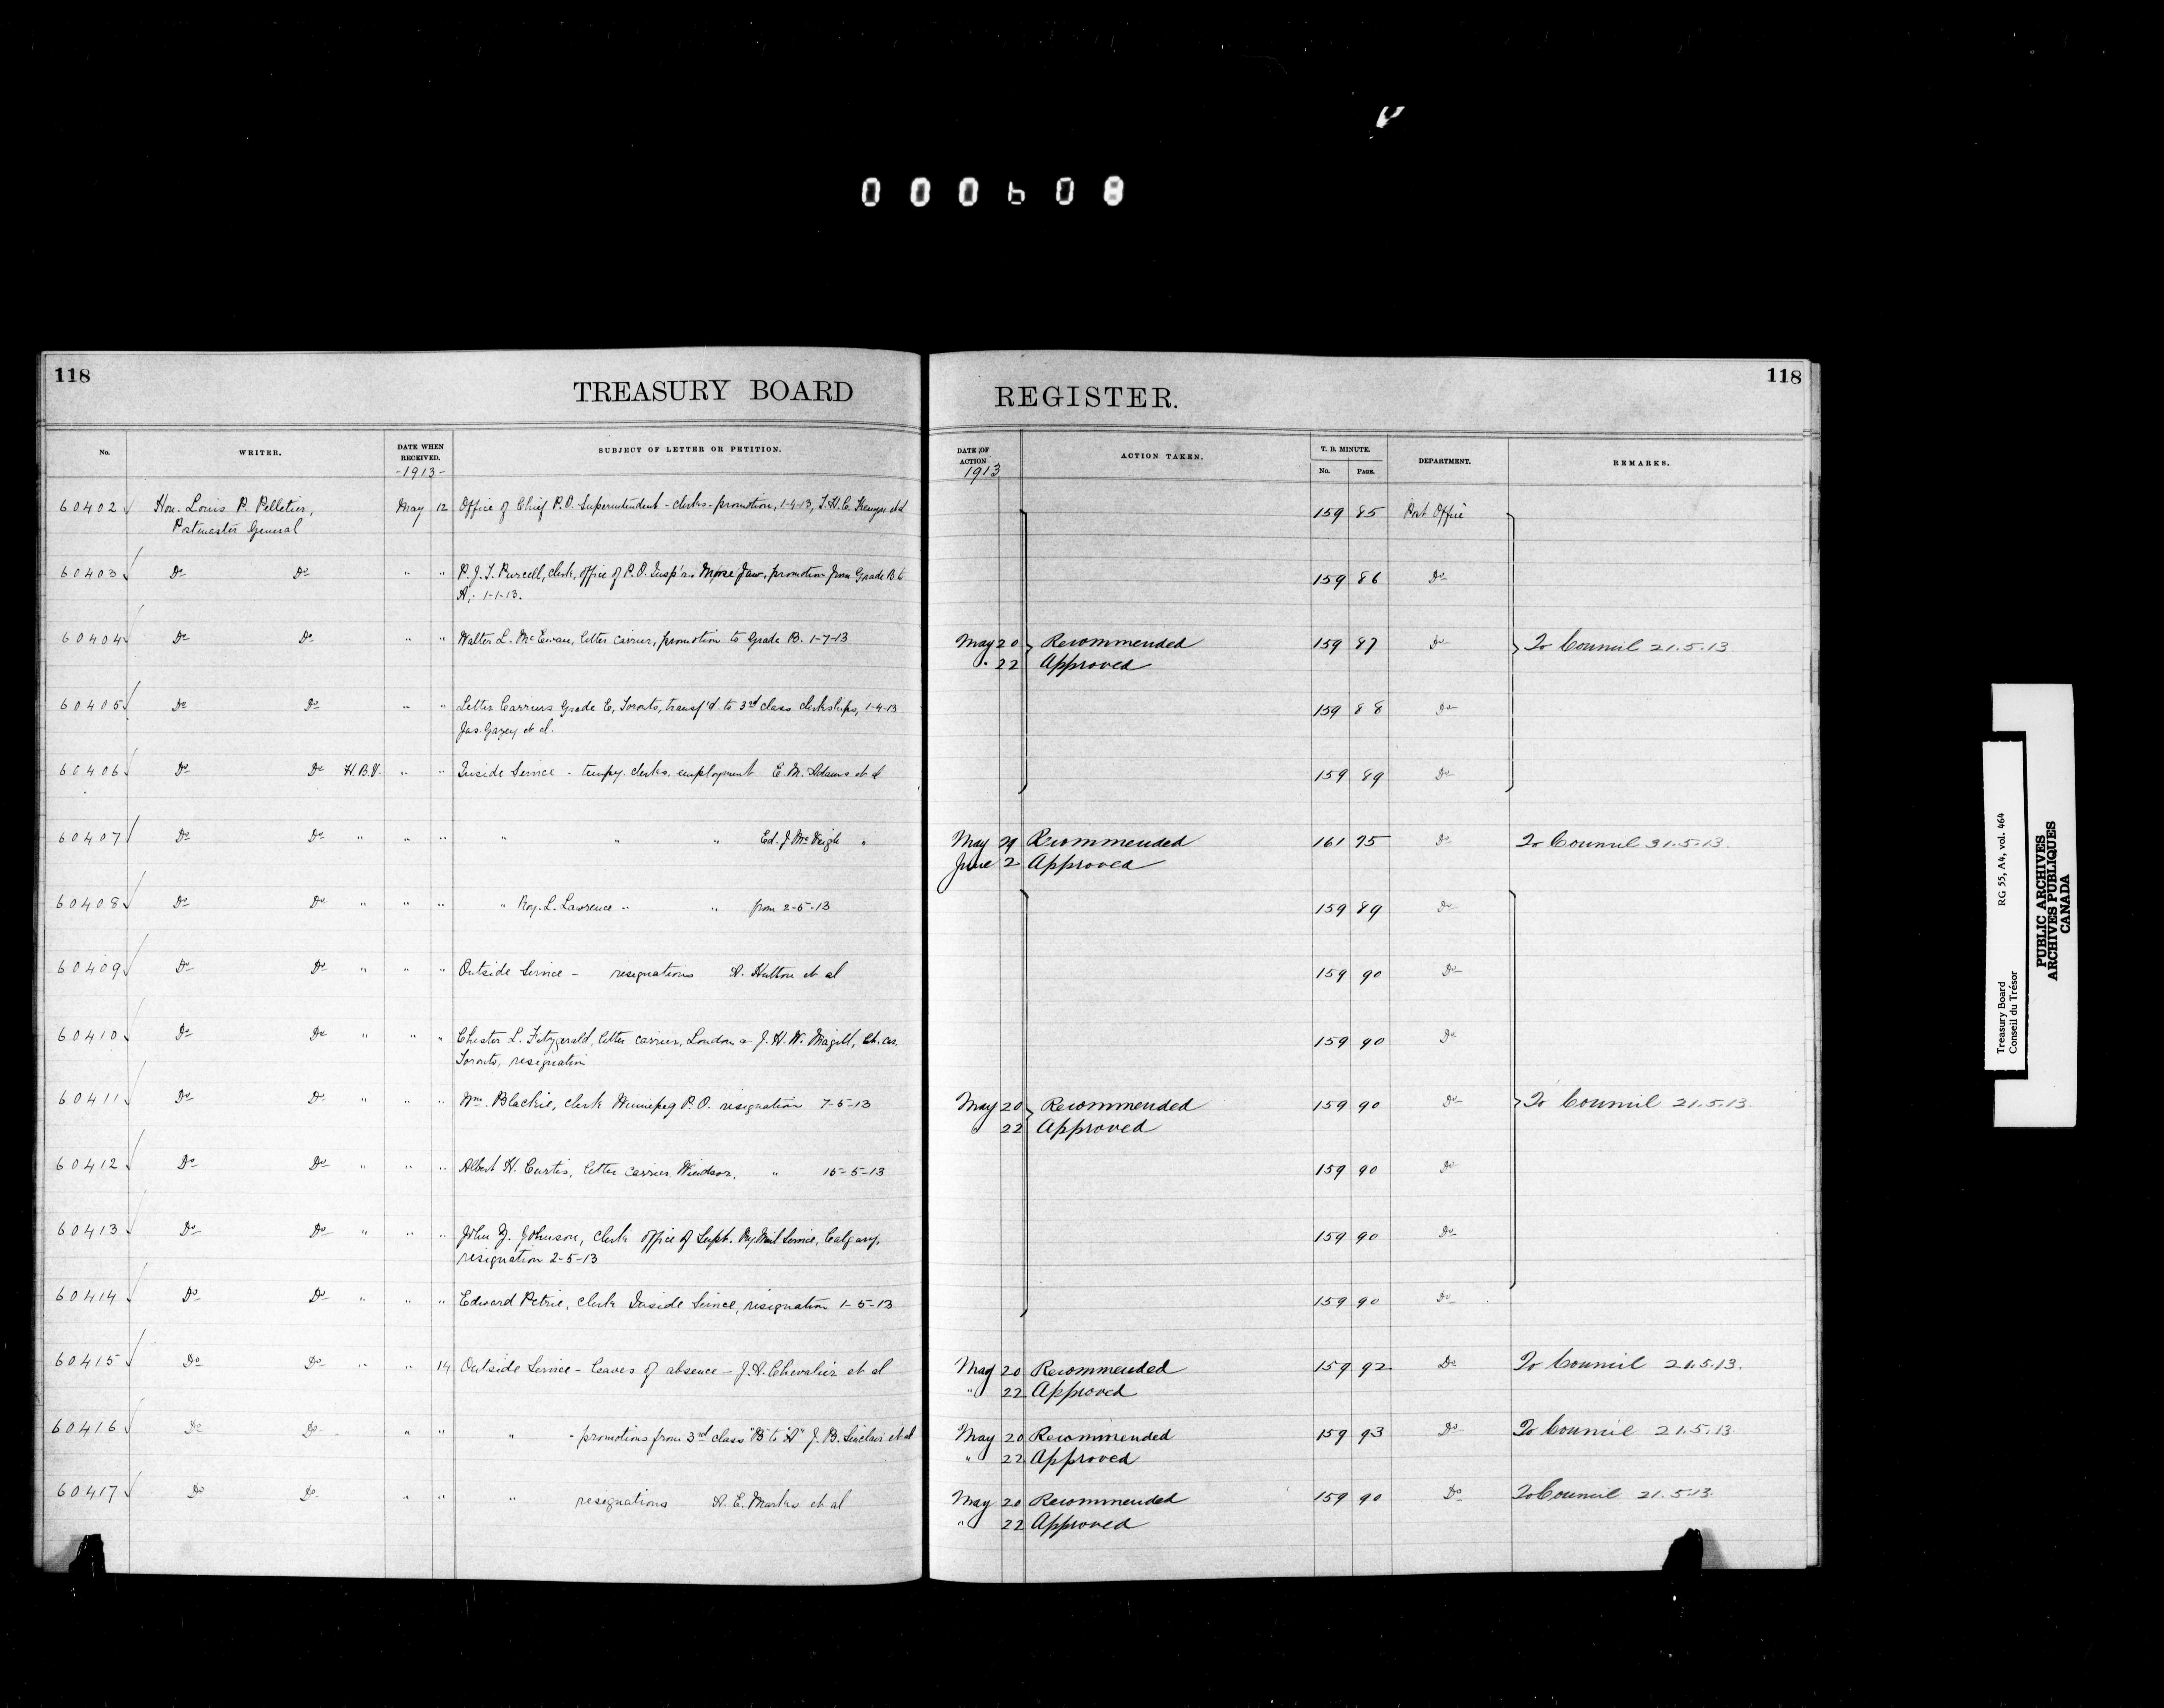 000608
118
TREASURY BOARD
REGISTER.
118
No.
WRITER.
DATE WHEN RECEIVED.
-1913-
SUBJECT OF LETTER OR PETITION.
DATE OF ACTION
1913
ACTION TAKEN.
T. B. MINUTE.
No.
PAGE.
DEPARTMENT.
REMARKS.
60402 Hon. Louis P. Pelletier, May 12 Office of Chief P.O. Superintendent - clerks - promotion, 1-4-13, et al 159 85 Post Office
Postmaster General
60403 Do Do " " P.J.T. Purcell, clerk, office of P.O. Insp'r. Moose Jaw, promotion from Grade B to 159 86 Do
A, 1-1-13.
60404 Do Do " " Walter L. McEwan, letter carrier, promotion to Grade B. 1-7-13 May 20 Recommended 159 87 Do To Council 21.5.13
" 22 Approved
60405 Do Do " " Letter Carriers Grade E, Toronto, transf'd. to 3rd class clerkships, 1-4-13 159 88 Do
Jas. Gazey et al.
60406 Do Do H.B.V. " " Inside Service - tempy. clerks, employment E.M. Adams et al 159 89 Do
60407 Do Do " " " " " " Ed. J. McVeigh " May 29 Recommended 161 75 Do To Council 31.5.13.
June 2 Approved
60408 Do Do " " " " Roy. L. Lawrence " " from 2-5-13 159 89 Do
60409 Do Do " " " Outside Service - resignations A. Hutton et al 159 90 Do
60410 Do Do " " " Chester L. Fitzgerald, letter carrier, London & J.H.W. Magill, let. car. 159 90 Do
Toronto, resignation
60411 Do Do " " " Wm. Blackie, clerk Winnipeg P.O. resignation 7-5-13 May 20 Recommended 159 90 Do To Council 21.5.13.
22 Approved
60412 Do Do " " " Albert H. Curtis, letter carrier Windsor, " 15-5-13 159 90 Do
60413 Do Do " " " John Y. Johnson, clerk office of Supt. Ry Mail Service, Calgary, 159 90 Do
resignation 2-5-13
60414 Do Do " " " Edward Petrie, clerk Inside Service, resignation 1-5-13 159 90 Do
60415 Do Do " " 14 Outside Service - leaves of absence - J.A. Chevalier et al May 20 Recommended 159 92 Do To Council 21.5.13.
" 22 Approved
60416 Do Do " " " - promotions from 3rd class "B" to "A" J.B. Sinclair et al May 20 Recommended 159 93 Do To Council 21.5.13.
" 22 Approved
60417 Do Do " " " resignations A.E. Marks et al May 20 Recommended 159 90 Do To Council 21.5.13.
" 22 Approved
Treasury Board RG 55, A4, vol. 464
Conseil du Trésor
PUBLIC ARCHIVES
ARCHIVES PUBLIQUES
CANADA